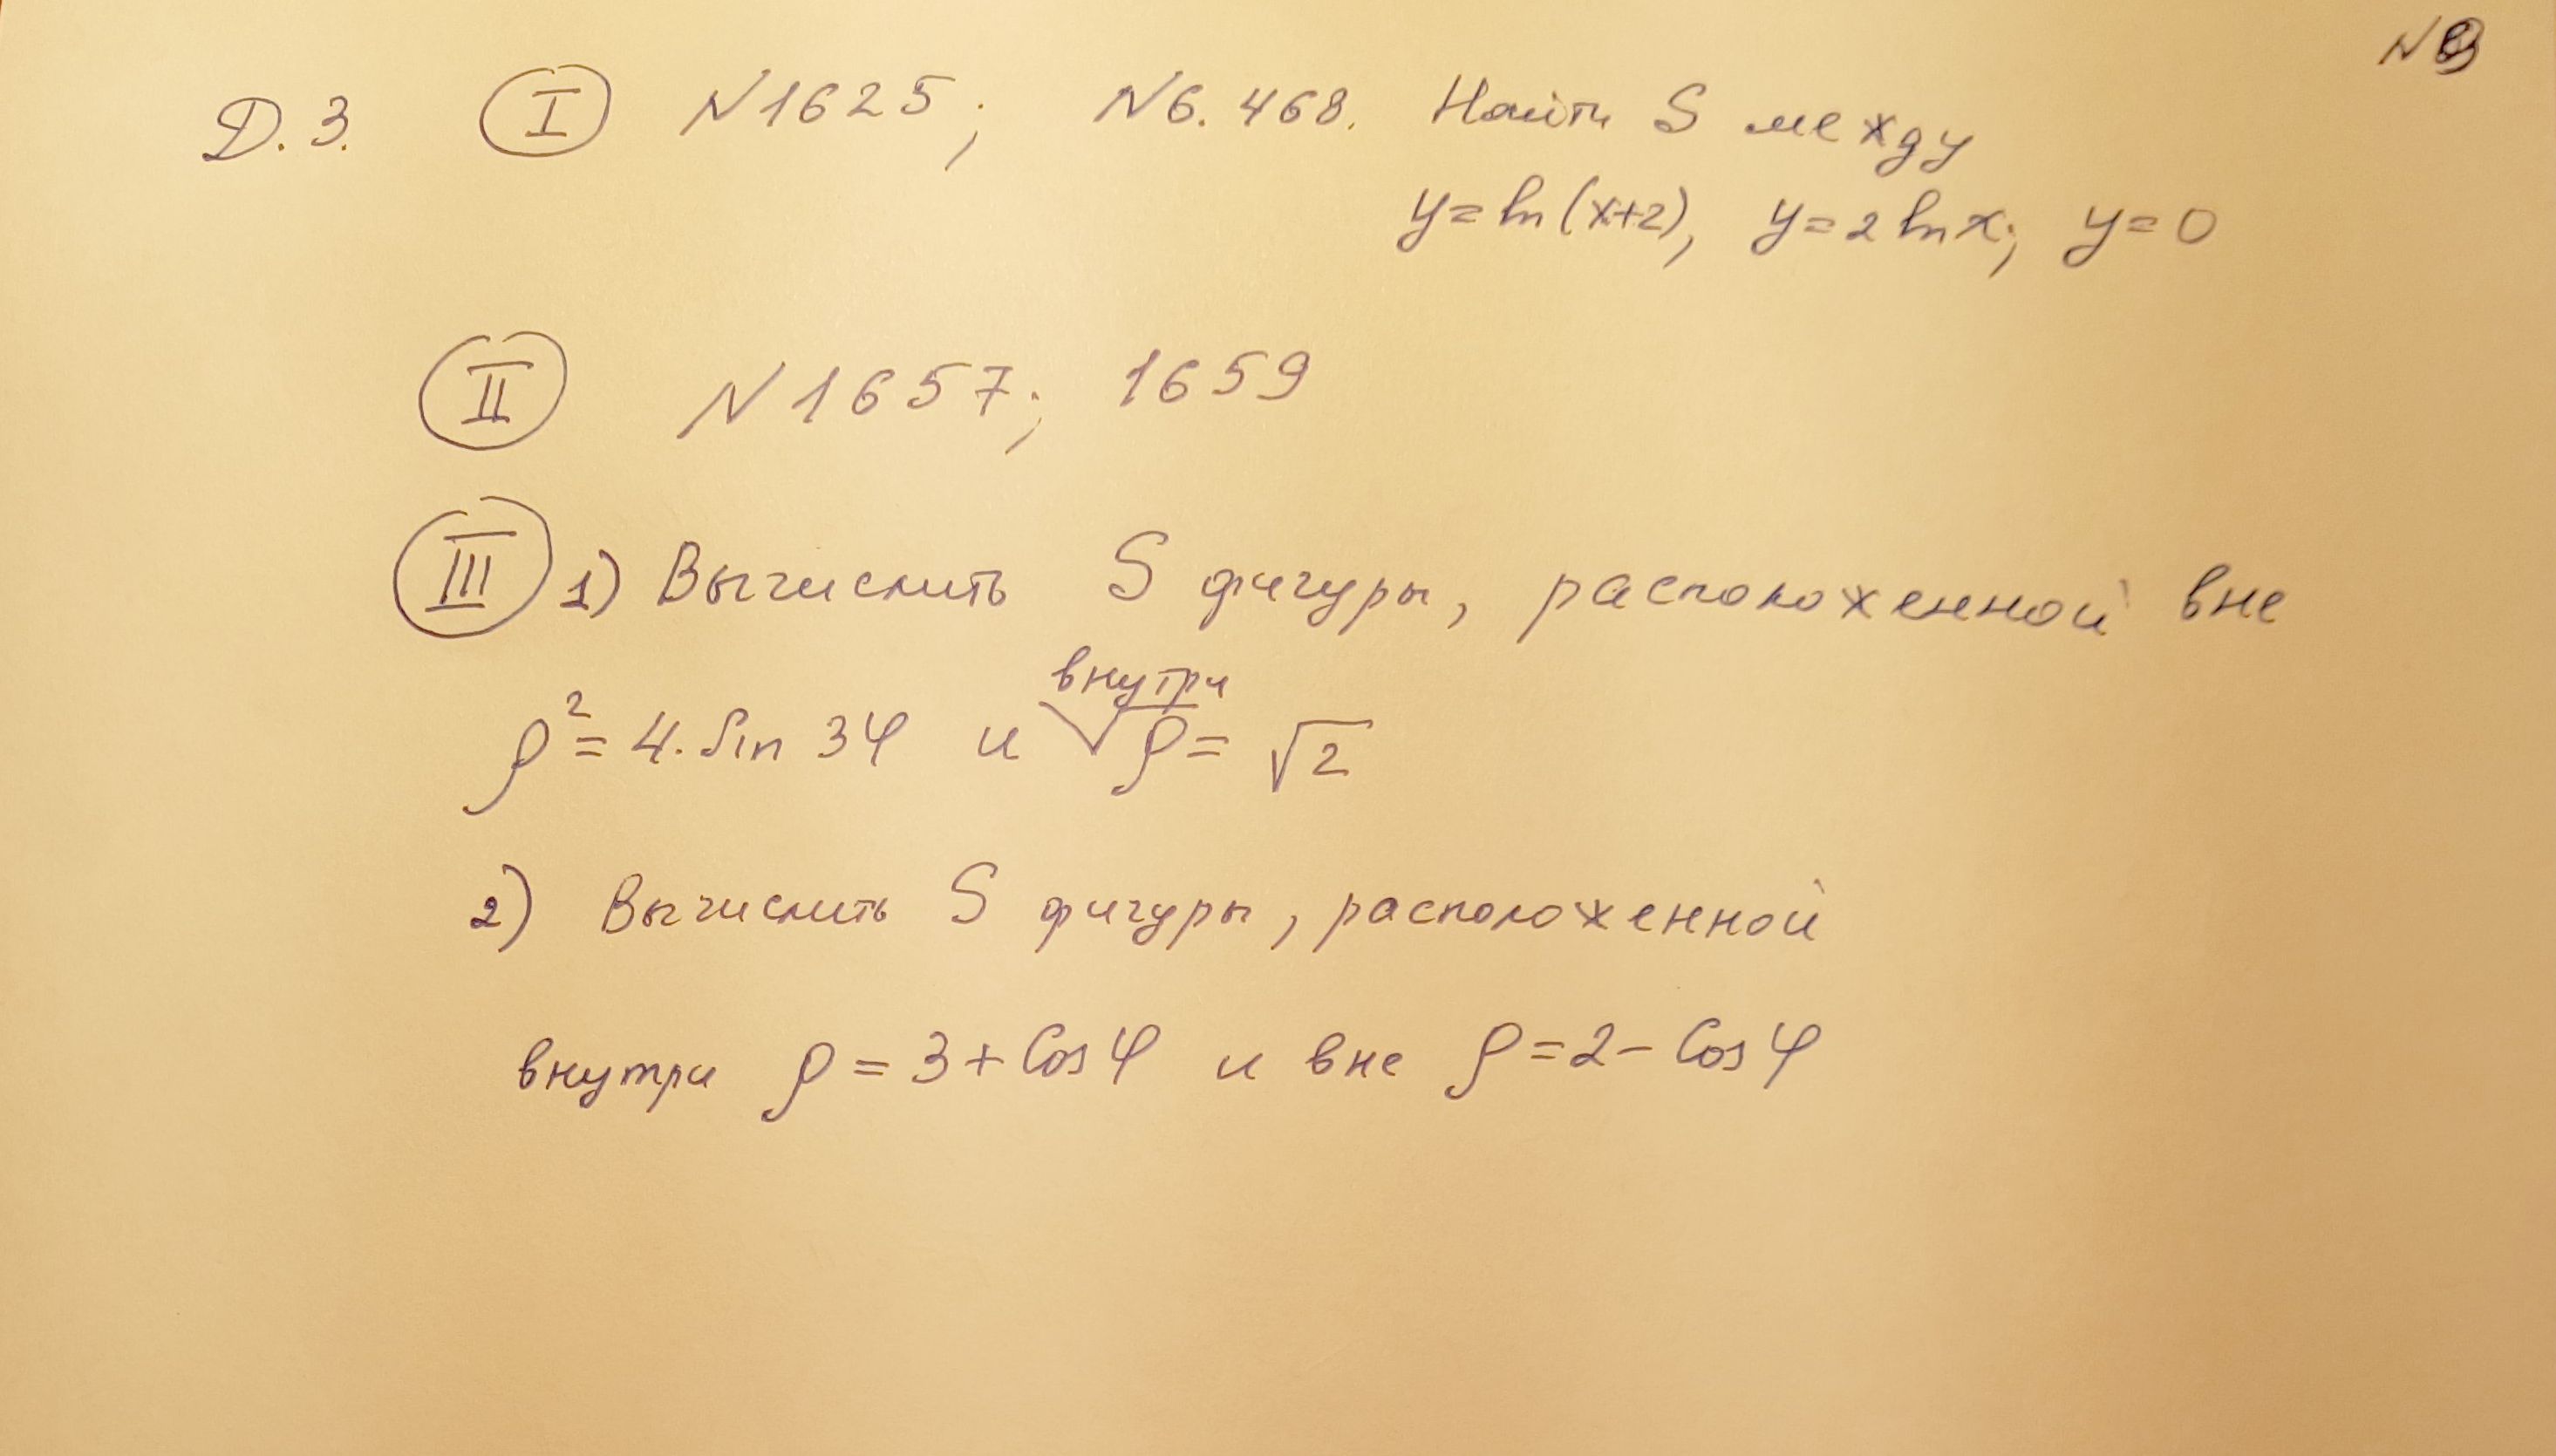 Д.З. I N1625; N6.468. Найти S между
y=ln(x+2), y=2lnx; y=0
II N1657; 1659
III 1) Вычислить S фигуры, расположенной вне
внутри
ρ²=4·Sin3φ и √ ρ=√2
2) Вычислить S фигуры, расположенной
внутри ρ=3+Cosφ и вне ρ=2-Cosφ